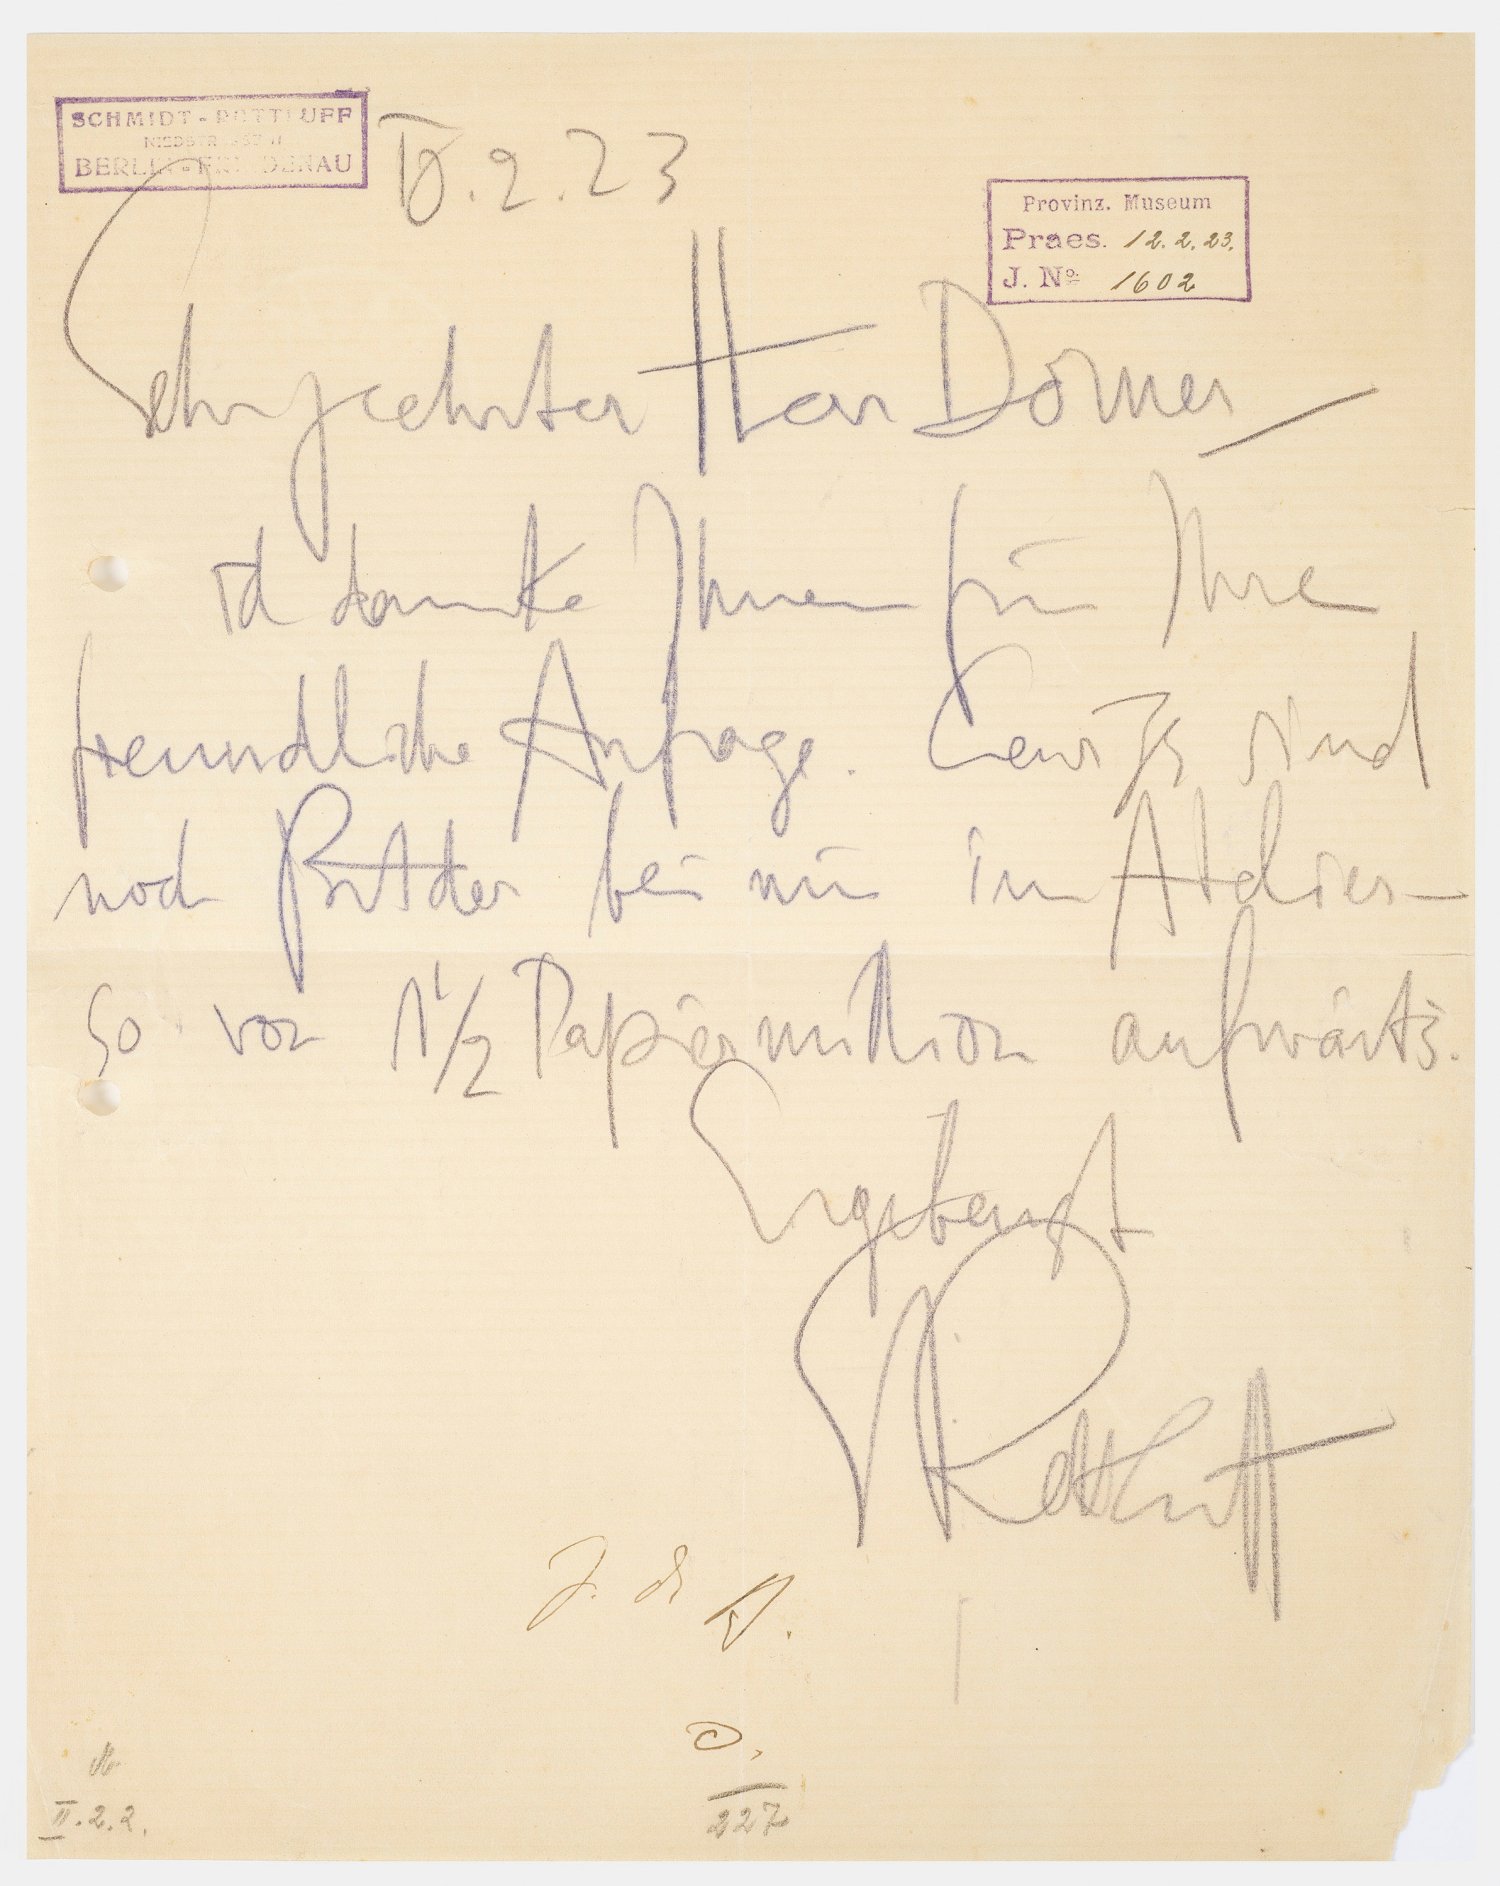 SCHMIDT-ROTTLUFF
NIEDSTRASSE 14
BERLIN-FRIEDENAU
10.2.23
Provinz. Museum
Praes. 12.2.23.
J. No 1602
Sehr geehrter Herr Dorner –
ich danke Ihnen für Ihre
freundliche Anfrage. Gewiß sind
noch Bilder bei mir im Atelier –
so von 1 1/2 Papiermillion aufwärts.
Ergebenst
SRottluff
Z. d. A.
D.
227
II.2.2.